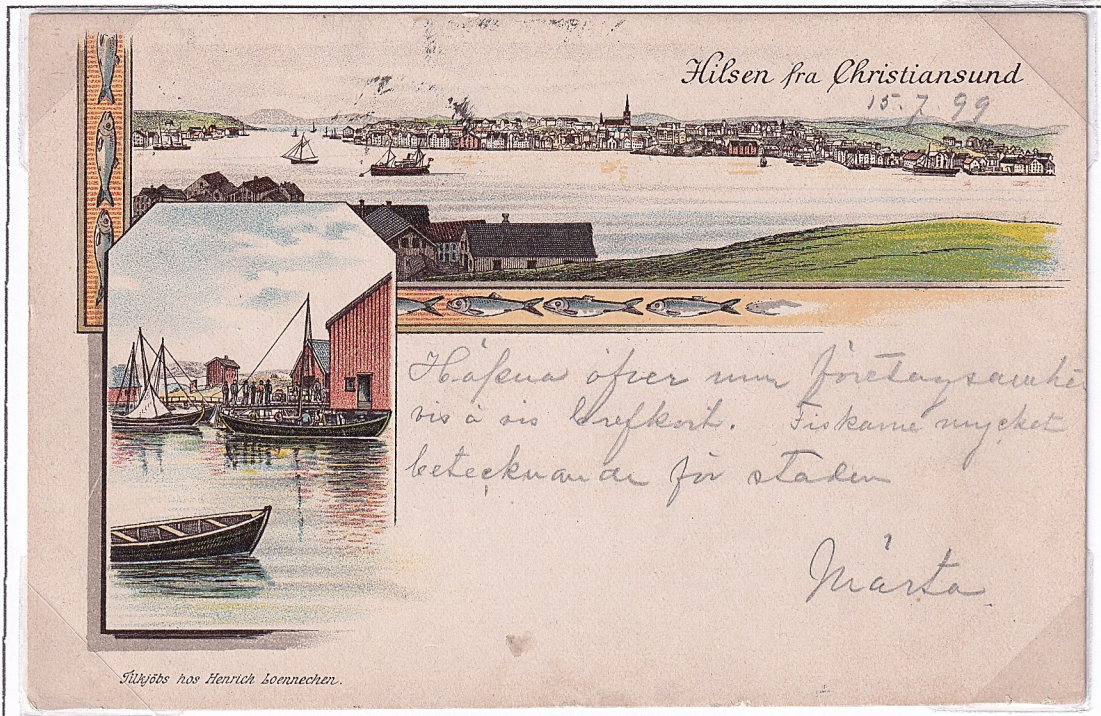 Hilsen fra Christiansund
15.7.99
Häpna öfver min företagsamhet
vis à vis brefkort. Fiskarne mycket
betecknande för staden
Märta
Tilkjöbs hos Henrich Loennechen.